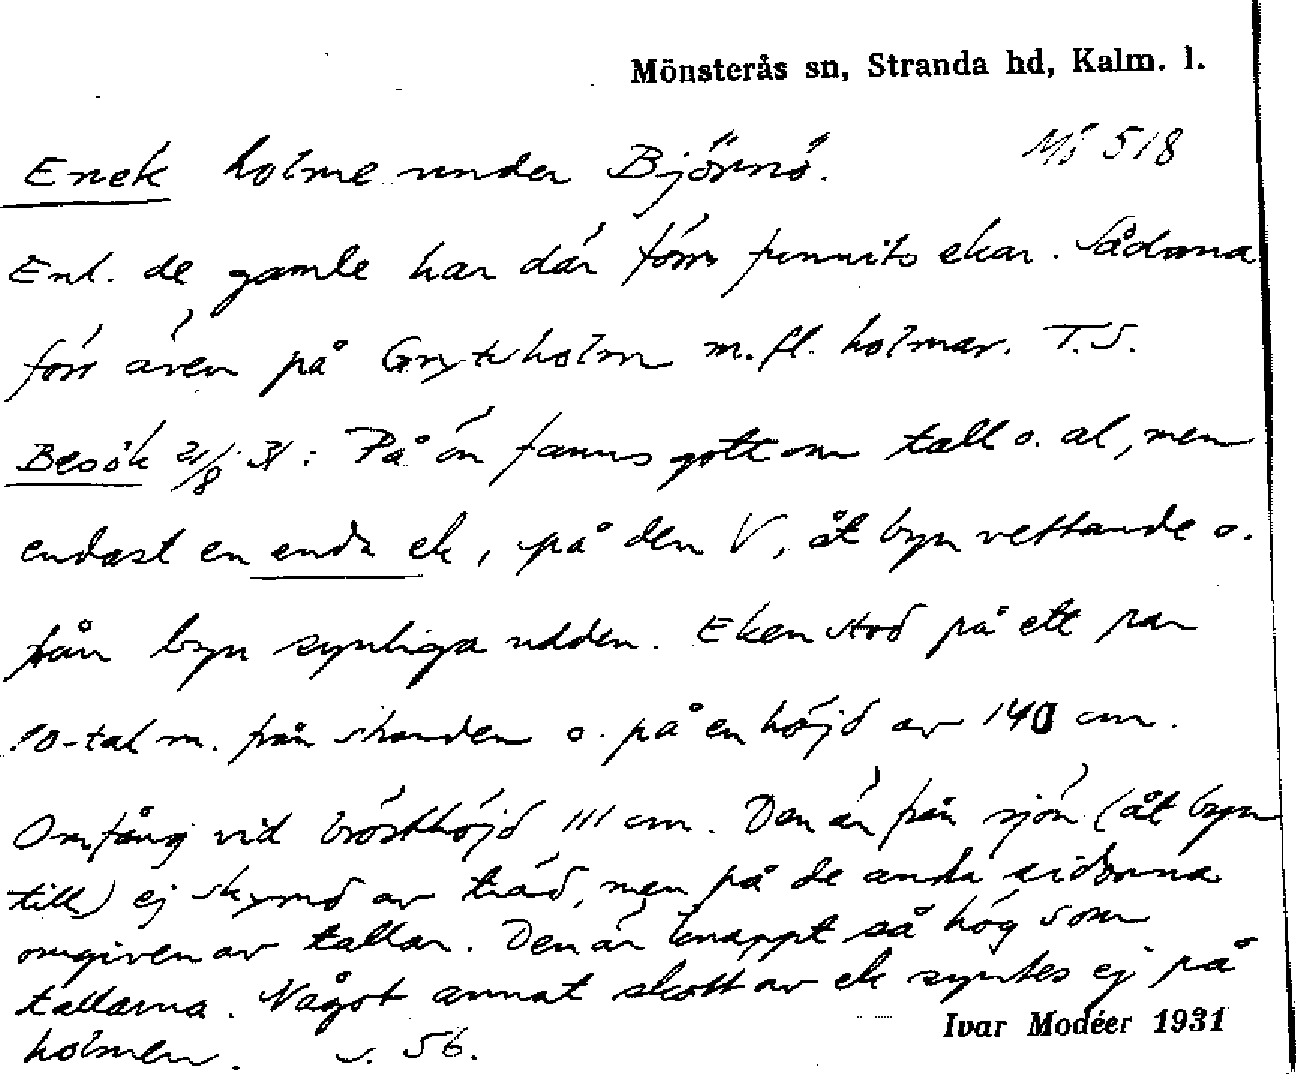 Mönsterås sn, Stranda hd, Kalm. l.
Enek holme under Björnö. Mö 518
Enl. de gamle har där förr funnits ekar. Sådana
förr även på Grytholm m.fl. holmar. T.S.
Besök 21/8 31: På ön fanns gott om tall o. al, men
endast en enda ek, på den V, åt byn vettande o.
från byn synliga udden. Eken stod på ett par
10-tal m. från stranden o. på en höjd av 140 cm.
Omfång vid brösthöjd 111 cm. Den är från sjön (åt byn
till) ej skymd av träd, men på de andra sidorna
omgiven av tallar. Den är knappt så hög som
tallarna. Något annat skott av ek syntes ej på
holmen. s. 56.
Ivar Modéer 1931